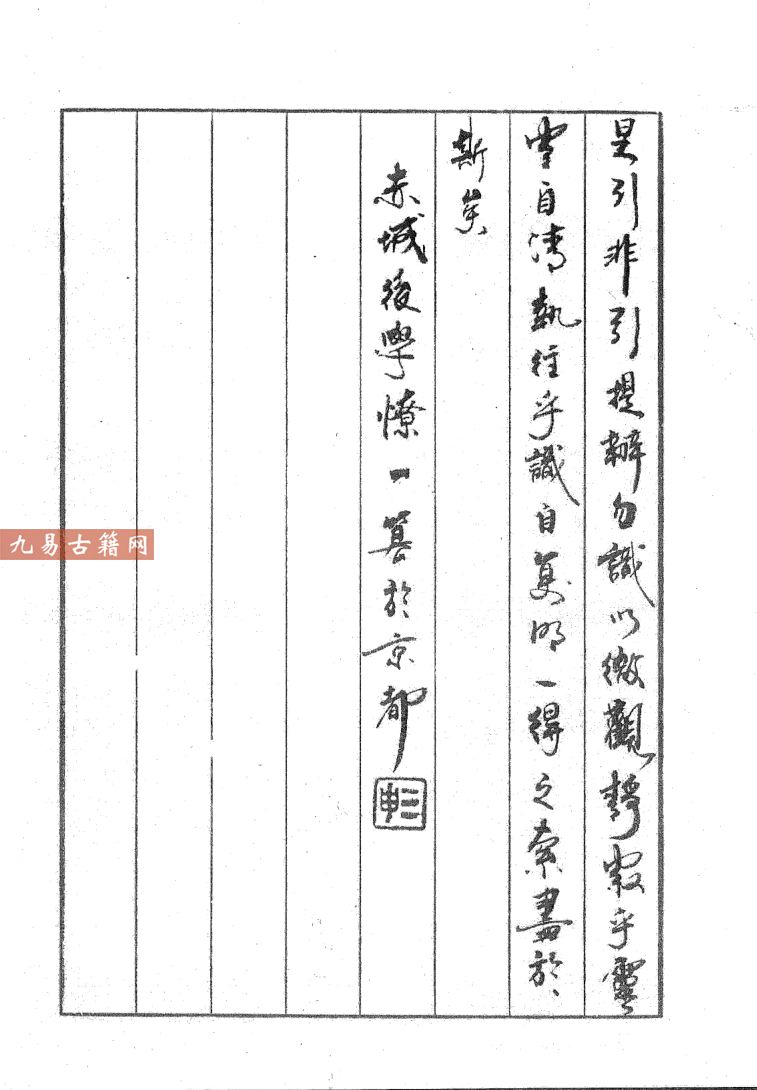 是引非引提辦勿識以微觀靜寂乎靈
掌自清執往乎識自复明一得之索盡於
斯矣
赤城後學憭一纂於京都
三申
九易古籍网